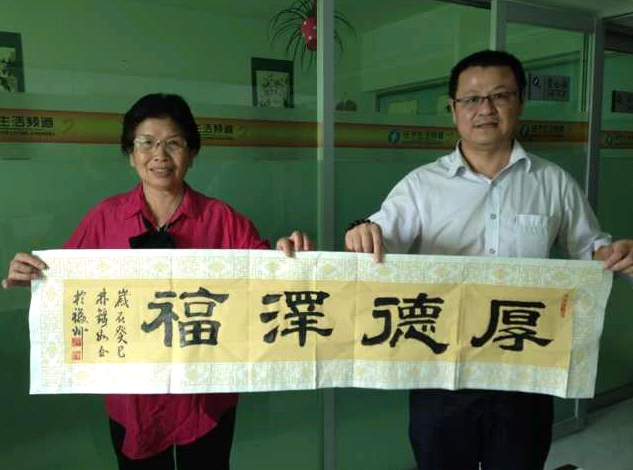 厚德澤福
歲在癸巳
於福州
生活频道
经济生活频道